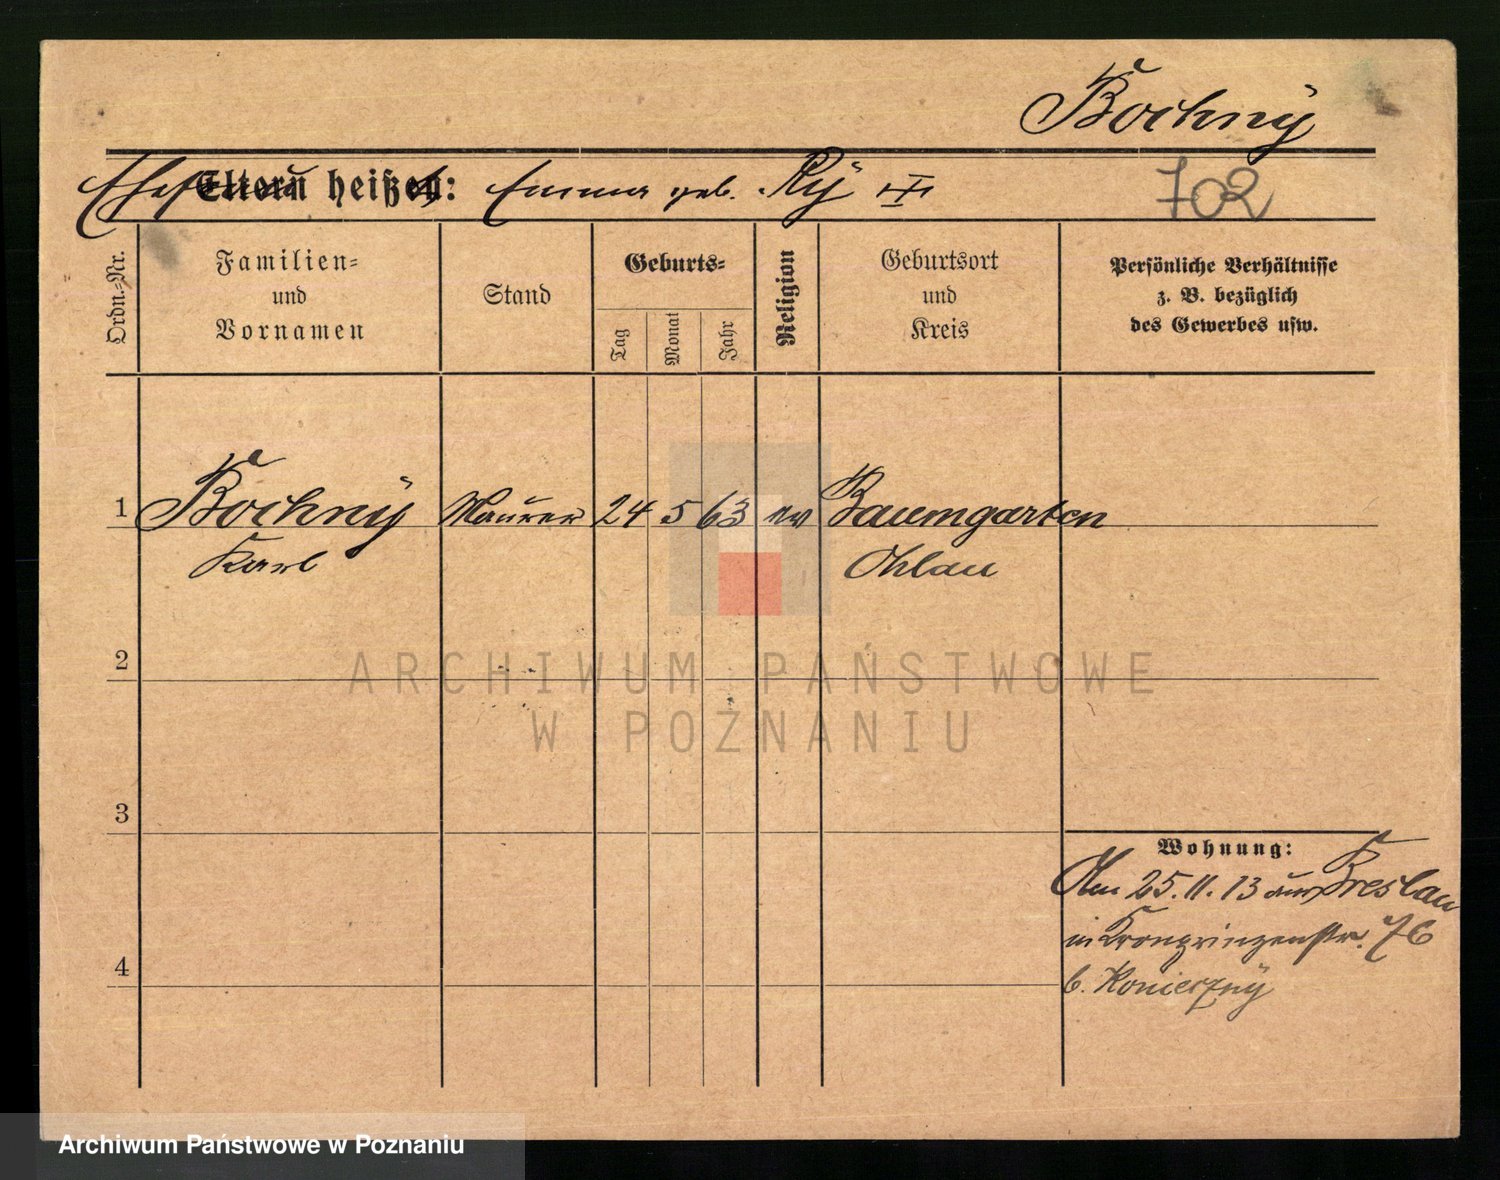 Bochnÿ
Ehefrau heißt: Emma geb. Rÿ
702
Ordn.-Nr.
Familien-
und
Vornamen
Stand
Geburts-
Tag
Monat
Jahr
Religion
Geburtsort
und
Kreis
Persönliche Verhältnisse
z. B. bezüglich
des Gewerbes usw.
1 Bochnÿ Maurer 24 5 63 ev Baumgarten
Karl Ohlau
2
ARCHIWUM PAŃSTWOWE
W POZNANIU
3
Wohnung:
Am 25.11.13 aus Breslau
in Kronprinzenstr. 76
4
b. Koniecznÿ
Archiwum Państwowe w Poznaniu